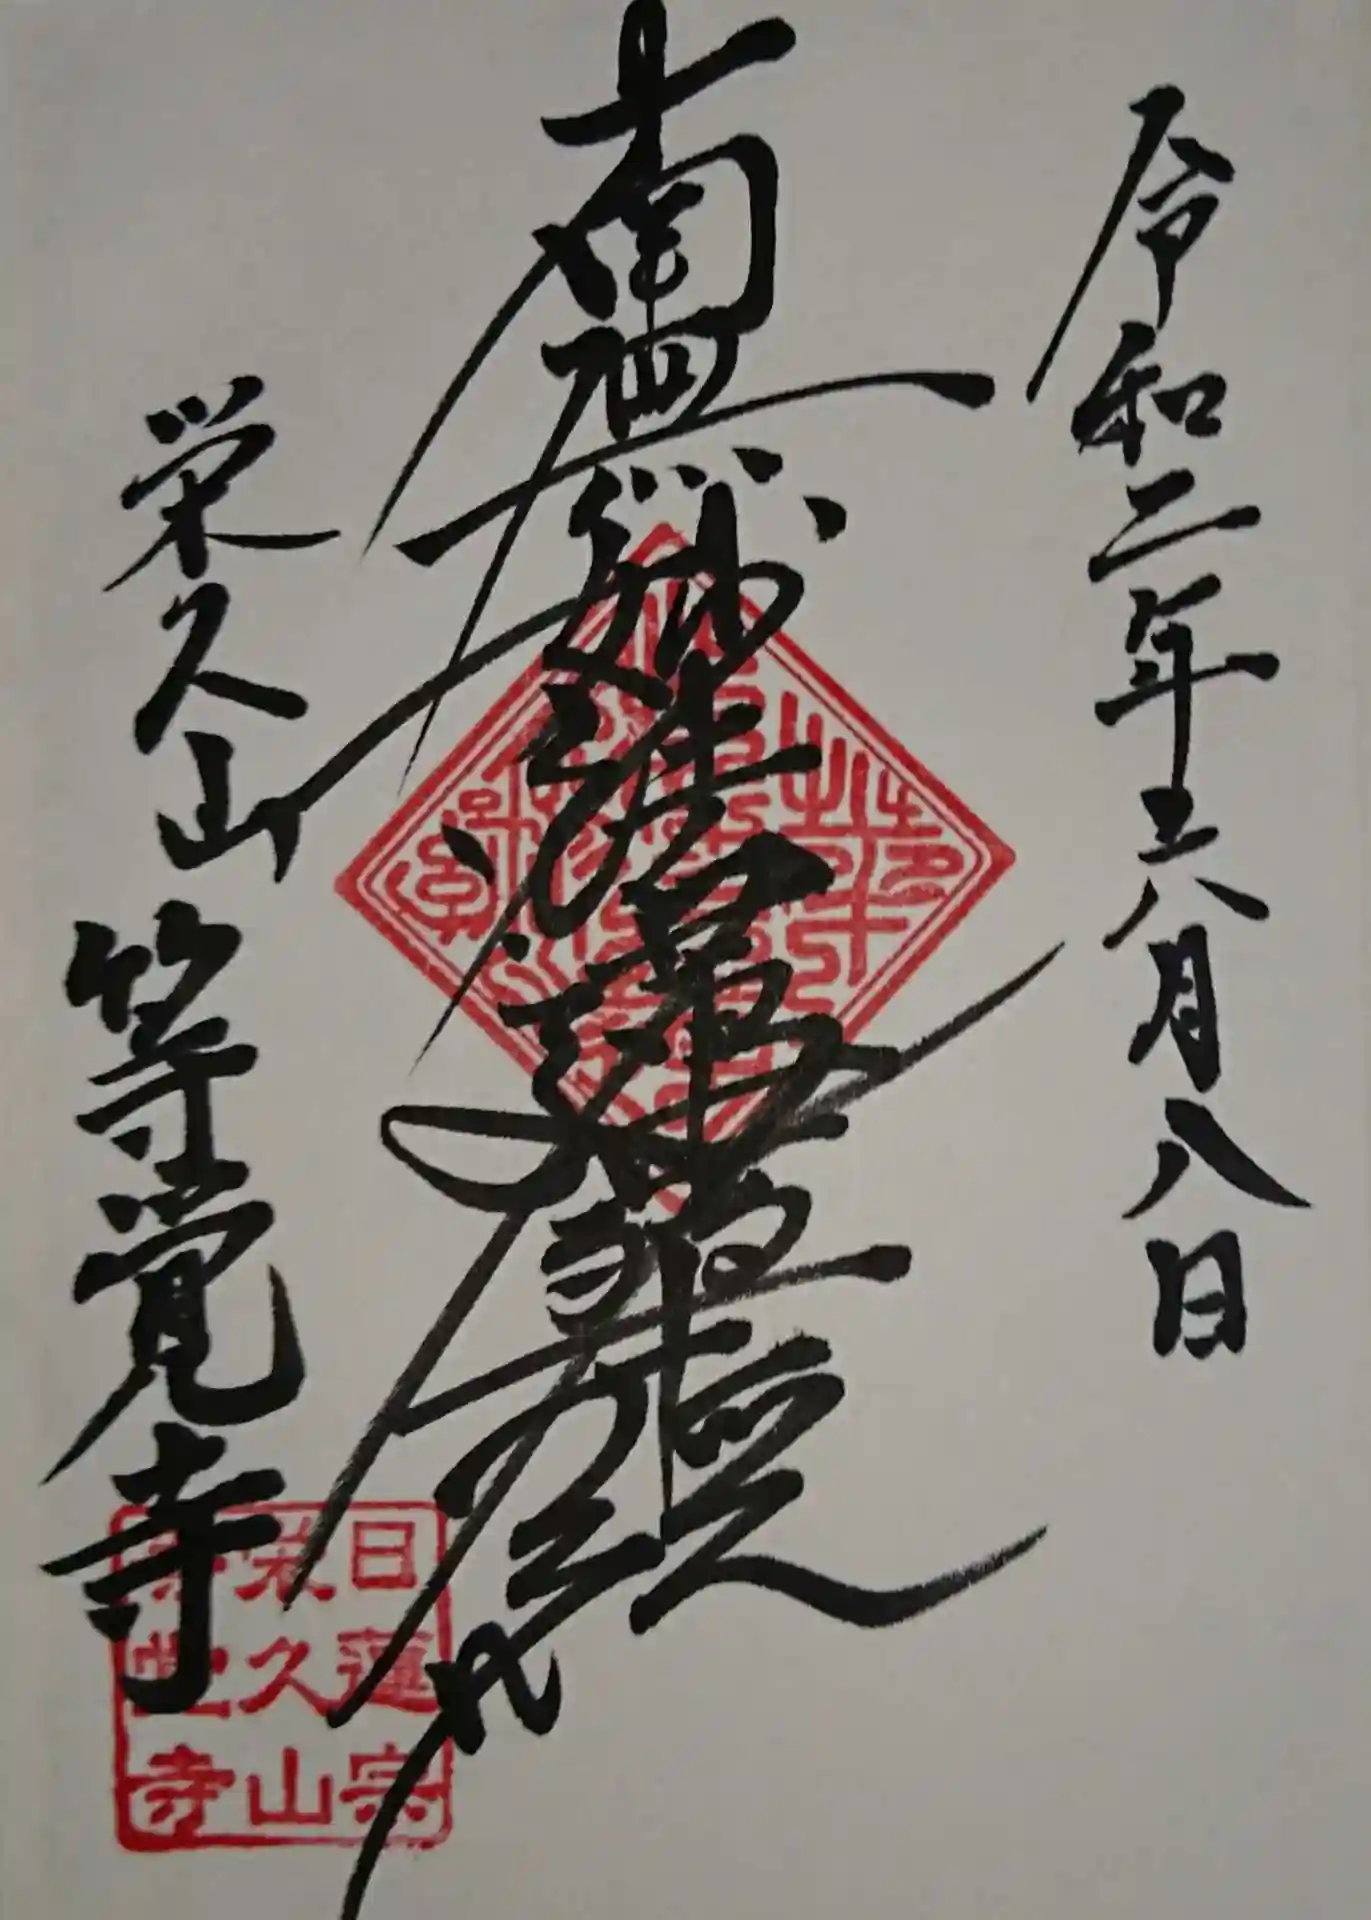 令和二年六月八日
南無妙法蓮華経
栄久山等覚寺
日蓮宗
栄久山
等覚寺